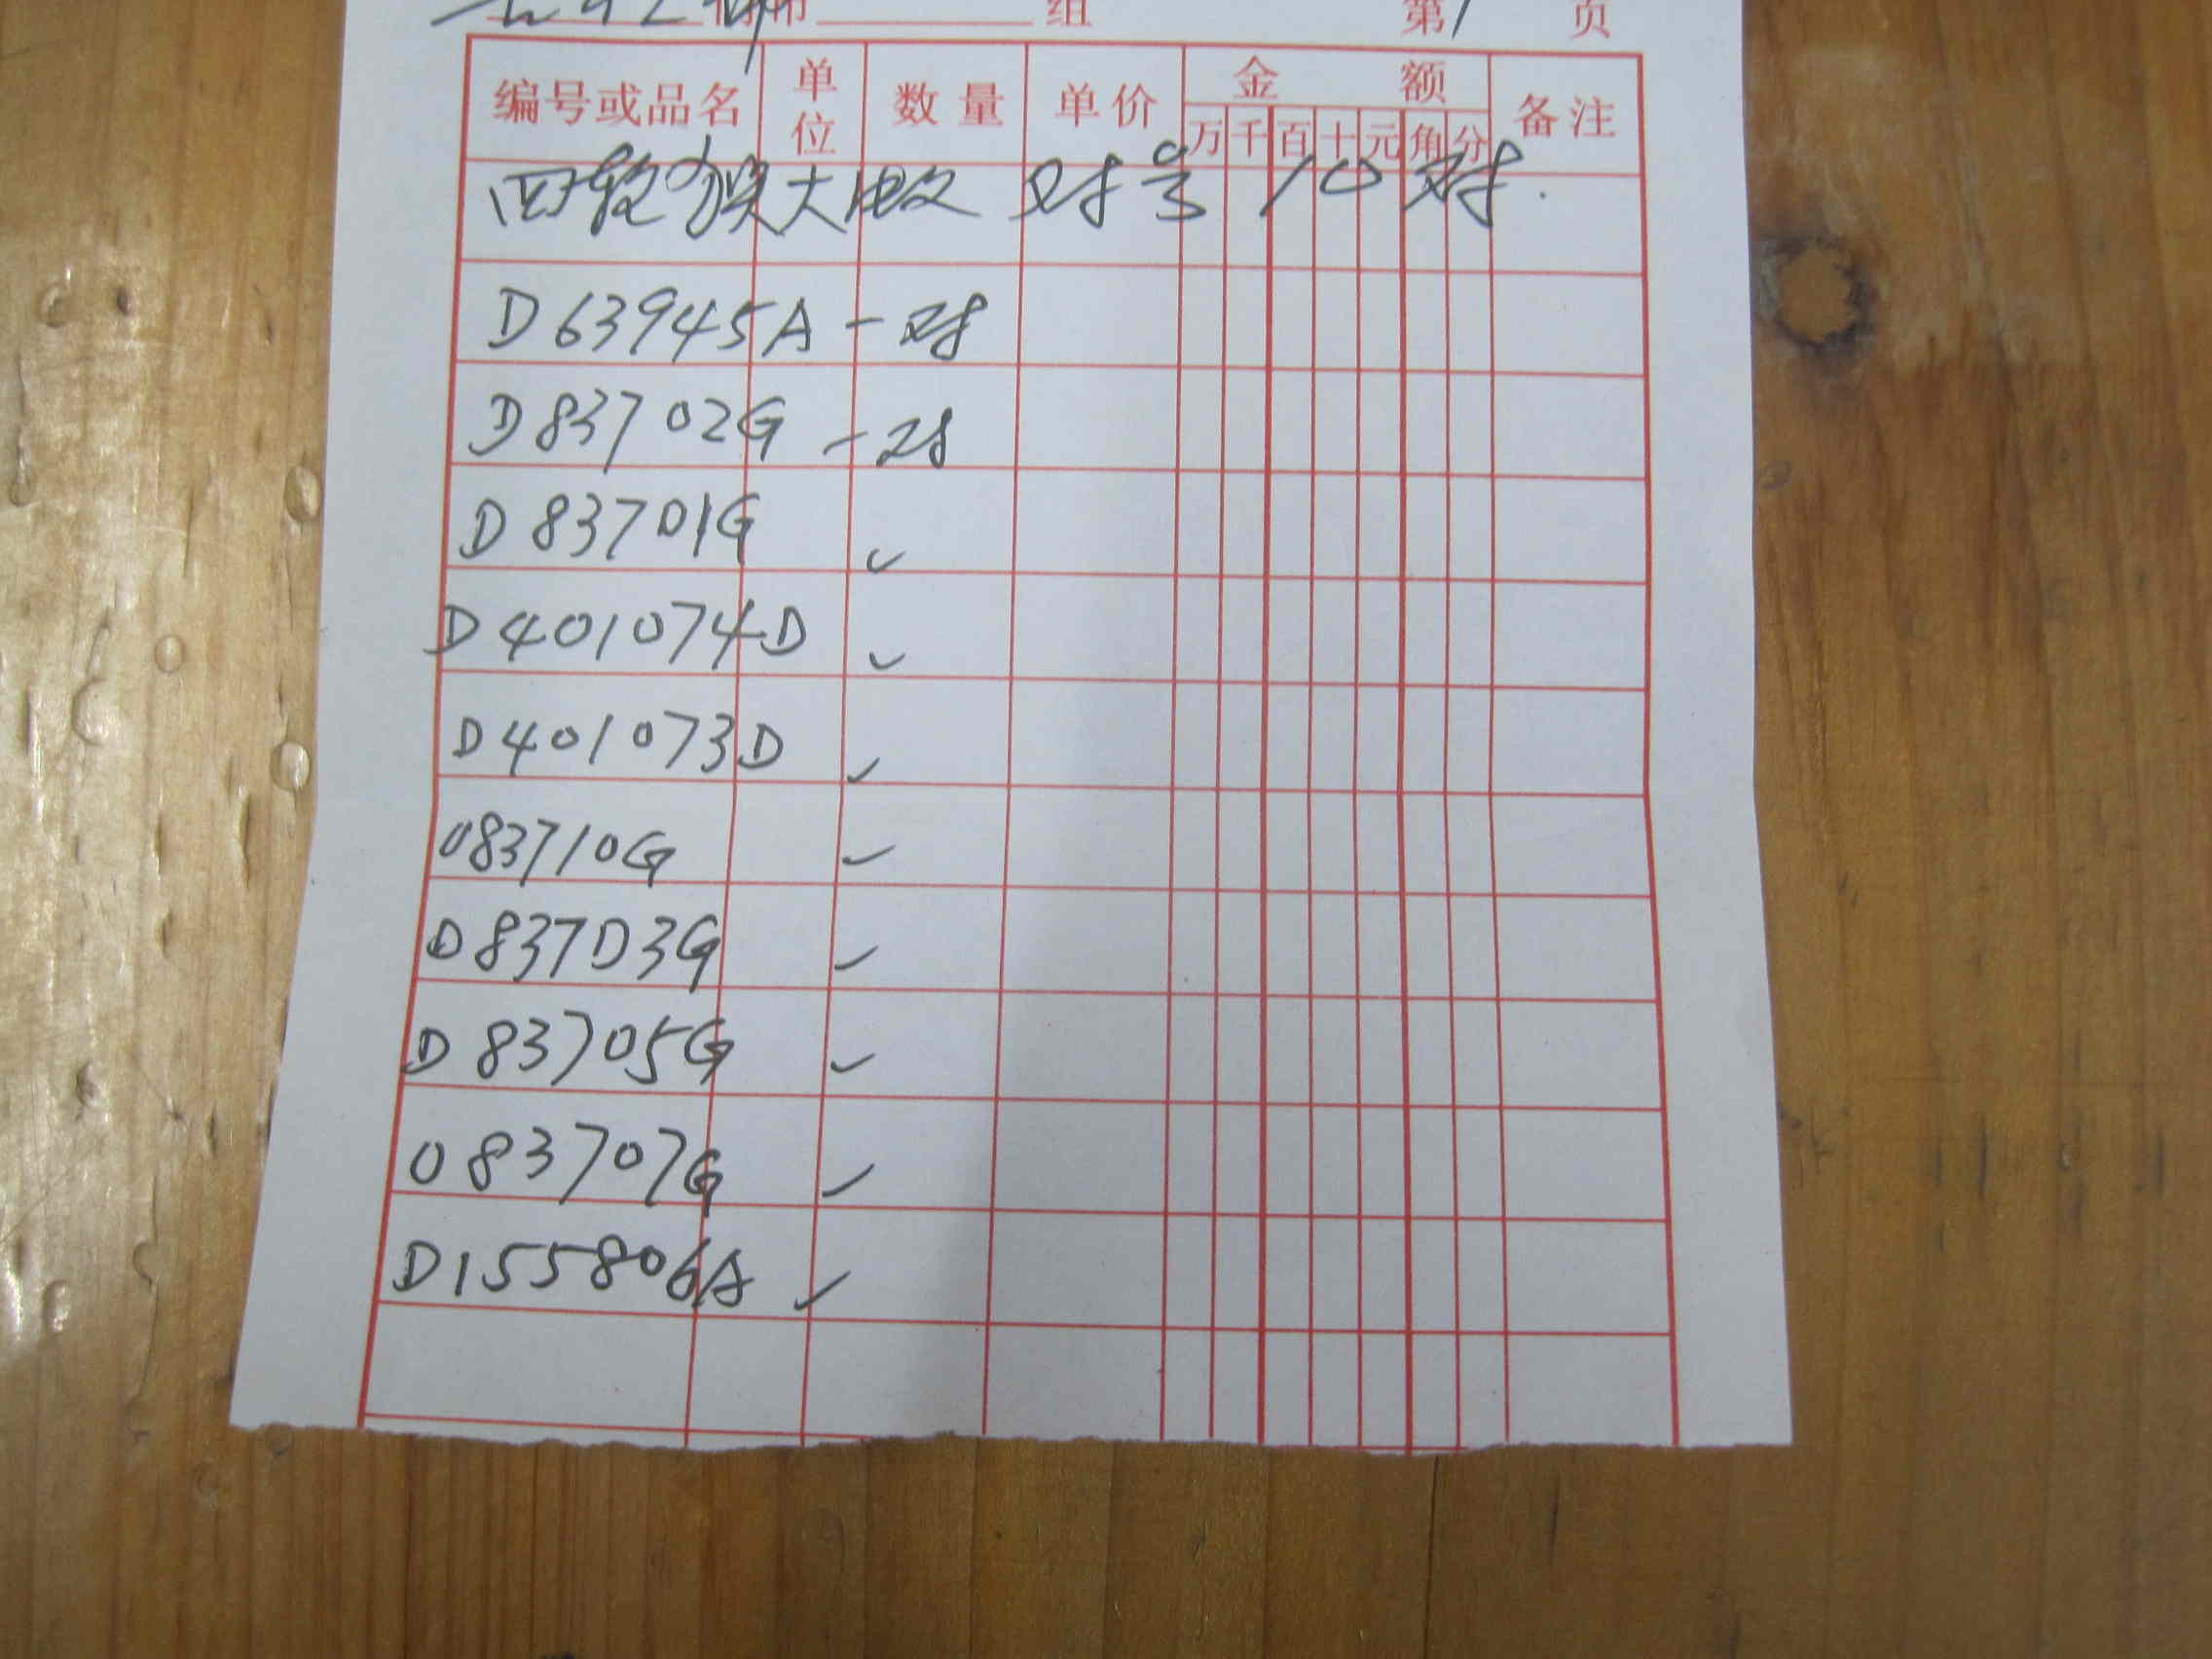 组 第1 页
编号或品名 单位 数量 单价 金额 备注
万 千 百 十 元 角 分
大 对号 10对.
D63945A 一对
D83702G 一对
D837D1G ✓
D401074D ✓
D401073D ✓
083710G ✓
D837D3G ✓
D83705G ✓
083707G ✓
D155806A ✓